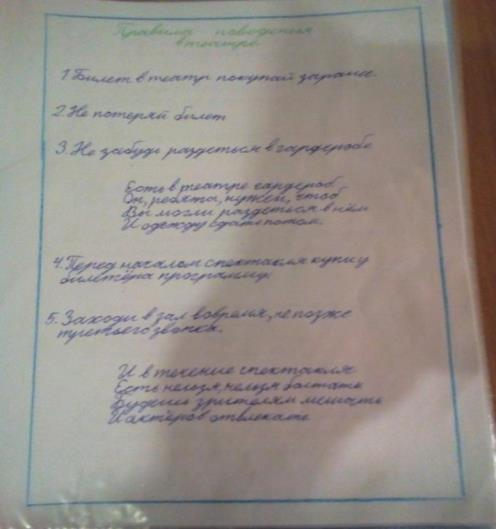 Правила поведения
в театре.
1. Билет в театр покупай заранее.
2. Не потеряй билет
3. Не забудь раздеться в гардеробе
Есть в театре гардероб.
Он, ребята, нужен, чтоб
Вы могли раздеться в нём
И одежду сдать потом.
4. Перед началом спектакля купи у
билетёра программку.
5. Заходи в зал вовремя, не позже
третьего звонка.
И в течение спектакля
Есть нельзя, нельзя болтать
Будешь зрителям мешать
И актёров отвлекать